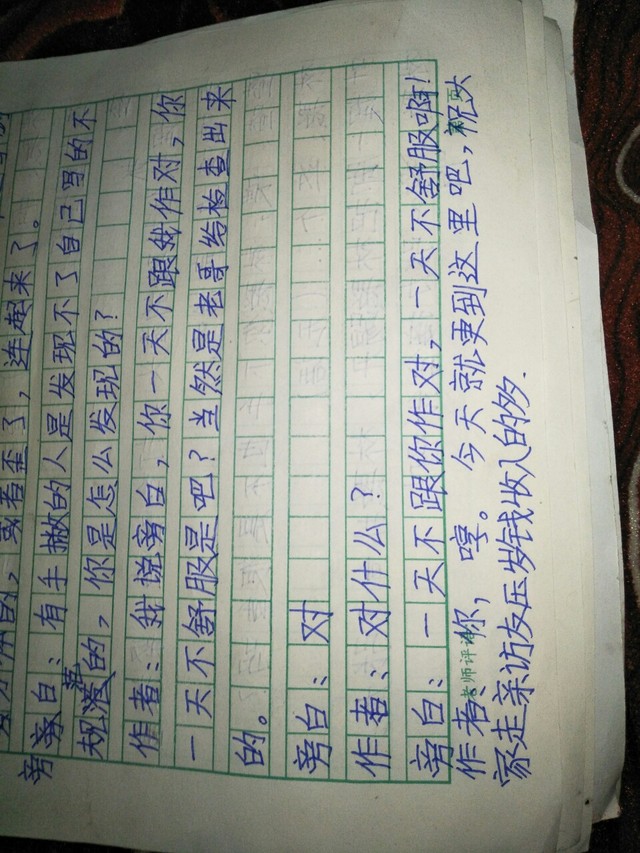 或者歪了，连起来了。
旁白：有手撇的人是发现不了自己写的不
规范的，你是怎么发现的？
作者：我说旁白，你一天不跟我作对，你
一天不舒服是吧？当然是老哥给检查出来
的。
旁白：对
作者：对什么？
旁白：一天不跟你作对，一天不舒服啊！
老师评语
作者：你，哼。今天就更到这里吧，祝大
家走亲访友压岁钱收入的多.